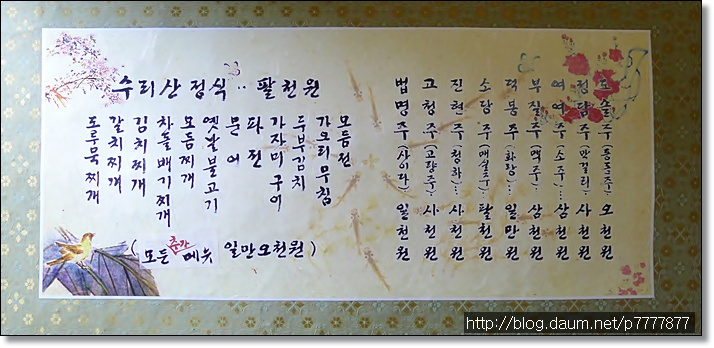 도솔주(동동주)‥오천원
청담주(막걸리)‥사천원
여여주(소주)‥‥삼천원
부질주(맥주)‥‥삼천원
적동주(화랑)‥‥일만원
소담주(매실주)‥팔천원
진현주(청하)‥‥사천원
고청주(고량주)‥사천원
법명주(사이다)‥일천원
수리산정식‥팔천원
모듬전
가오리무침
두부김치
가자미구이
파전
문어
옛날불고기
모듬찌개
차돌배기찌개
김치찌개
갈치찌개
도루묵찌개
(모든 추가 메뉴 일만오천원)
http://blog.daum.net/p7777877